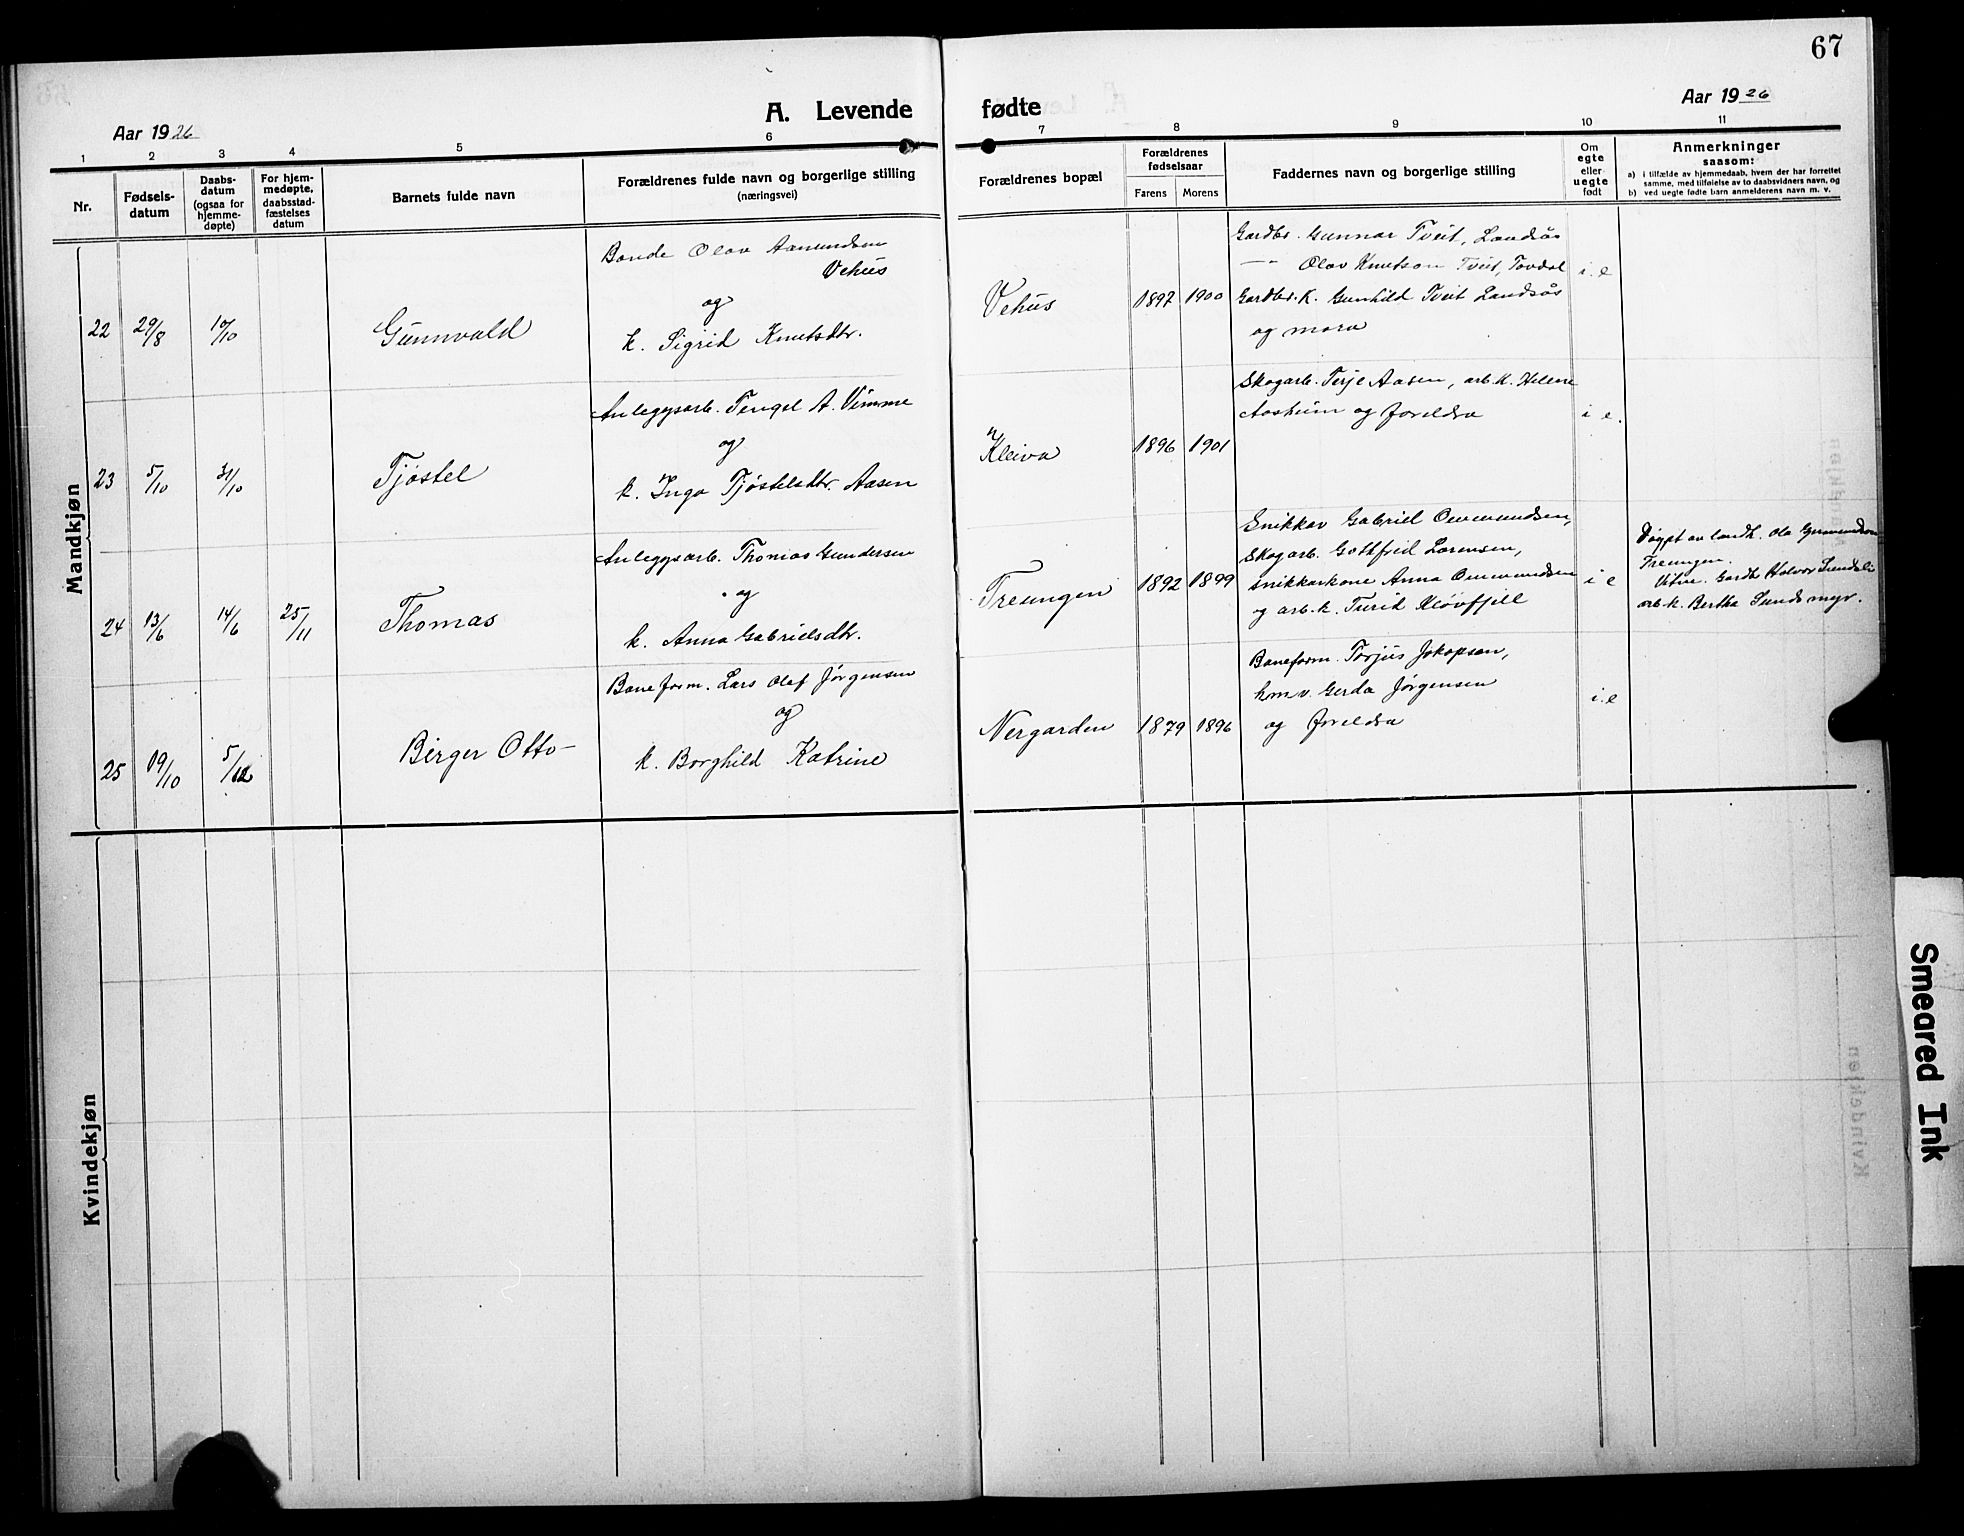 67
A. Levende fødte
Aar 1926
Aar 1926
1 2 3 4 5 6 7 8 9 10 11
Nr.
Fødsels-
datum
Daabs-
datum
(ogsaa for
hjemme-
døpte)
For hjem-
medøpte,
daabsstad-
fæstelses
datum
Barnets fulde navn
Forældrenes fulde navn og borgerlige stilling
(næringsvei)
Forældrenes bopæl
Forældrenes
fødselsaar
Farens Morens
Faddernes navn og borgerlige stilling
Om
egte
eller
uegte
født
Anmerkninger
saasom:
a) i tilfælde av hjemmedaab, hvem der har forrettet
samme, med tilføielse av to daabsvidners navn, og
b) ved uegte fødte barn anmelderens navn m. v.
Mandkjøn
22 29/8 10/10 Gunnvald
Bonde Olav Aamundsen
Vehus
og
k. Sigrid Knutsdtr.
Vehus 1897 1900
Gardbr. Gunnar Tveit, Landsås
-"- Olav Knutson Tveit, Tovdal
Gardbr.k. Gunhild Tveit Landsås
og mora
i.e
23 5/10 31/10 Tjøstel
Anleggsarb. Tengel A. Vimme
og
k. Inga Tjøstelsdtr. Aasen
Kleiva 1896 1901
Skogarb. Terje Aasen, arb.k. Helene
Aasheim og foreldra
i e.
24 13/6 14/6 25/11 Thomas
Anleggsarb. Thomas Gundersen
og
k. Anna Gabrielsdtr.
Treungen 1892 1899
Snikkar Gabriel Ommundsen,
Skogarb. Gothfred Lorensen,
snikkarkone Anna Ommundsen
og arb.k. Turid Kløvfjell
i e
Døypt av landh. Ola
Treungen.
Vitne. Gardb. Halvor
arb.k. Bertha Sundsmyr.
25 19/10 5/12 Birger Otto
Baneform. Lars Olaf Jørgensen
og
k. Borghild Katrine
Nergarden 1879 1896
Baneform. Torjus Jakopsen,
hmv. Gerda Jørgensen
og foreldra
i.e
Kvindekjøn
Smeared Ink